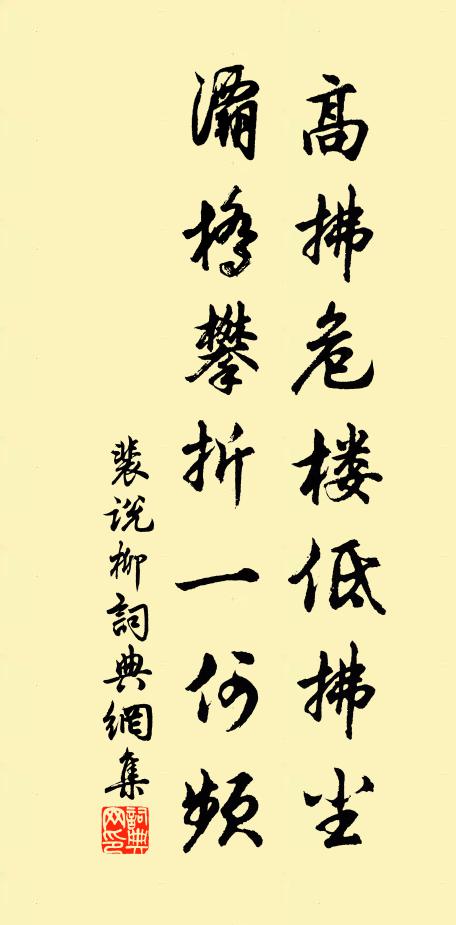 高拂危楼低拂尘
灞桥攀折一何频
裴说柳詞典網集
詞典网印